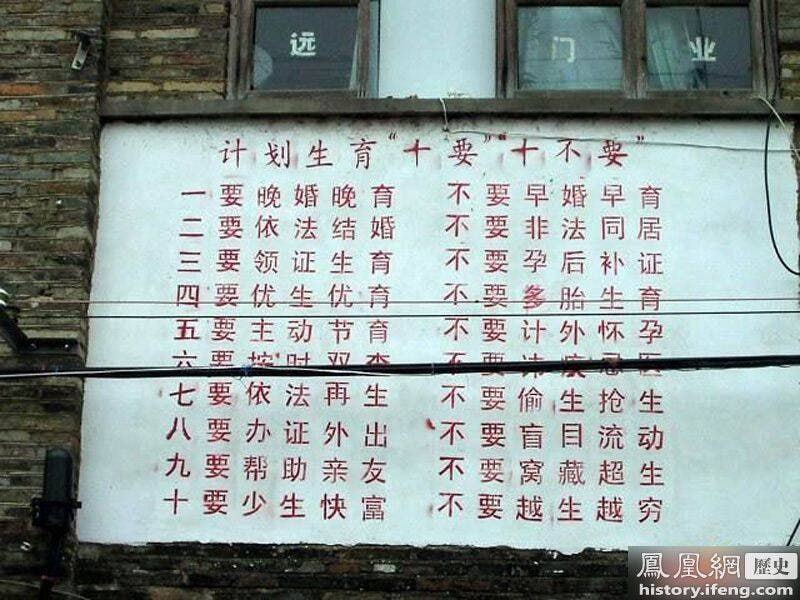 远 门 业
计划生育“十要”“十不要”
一要晚婚晚育 不要早婚早育
二要依法结婚 不要非法同居
三要领证生育 不要孕后补证
四要优生优育 不要多胎生育
五要主动节育 不要计外怀孕
六要按时双查 不要讳疾忌医
七要依法再生 不要偷生抢生
八要办证外出 不要盲目流动
九要帮助亲友 不要窝藏超生
十要少生快富 不要越生越穷
鳳凰網 歷史
history.ifeng.com